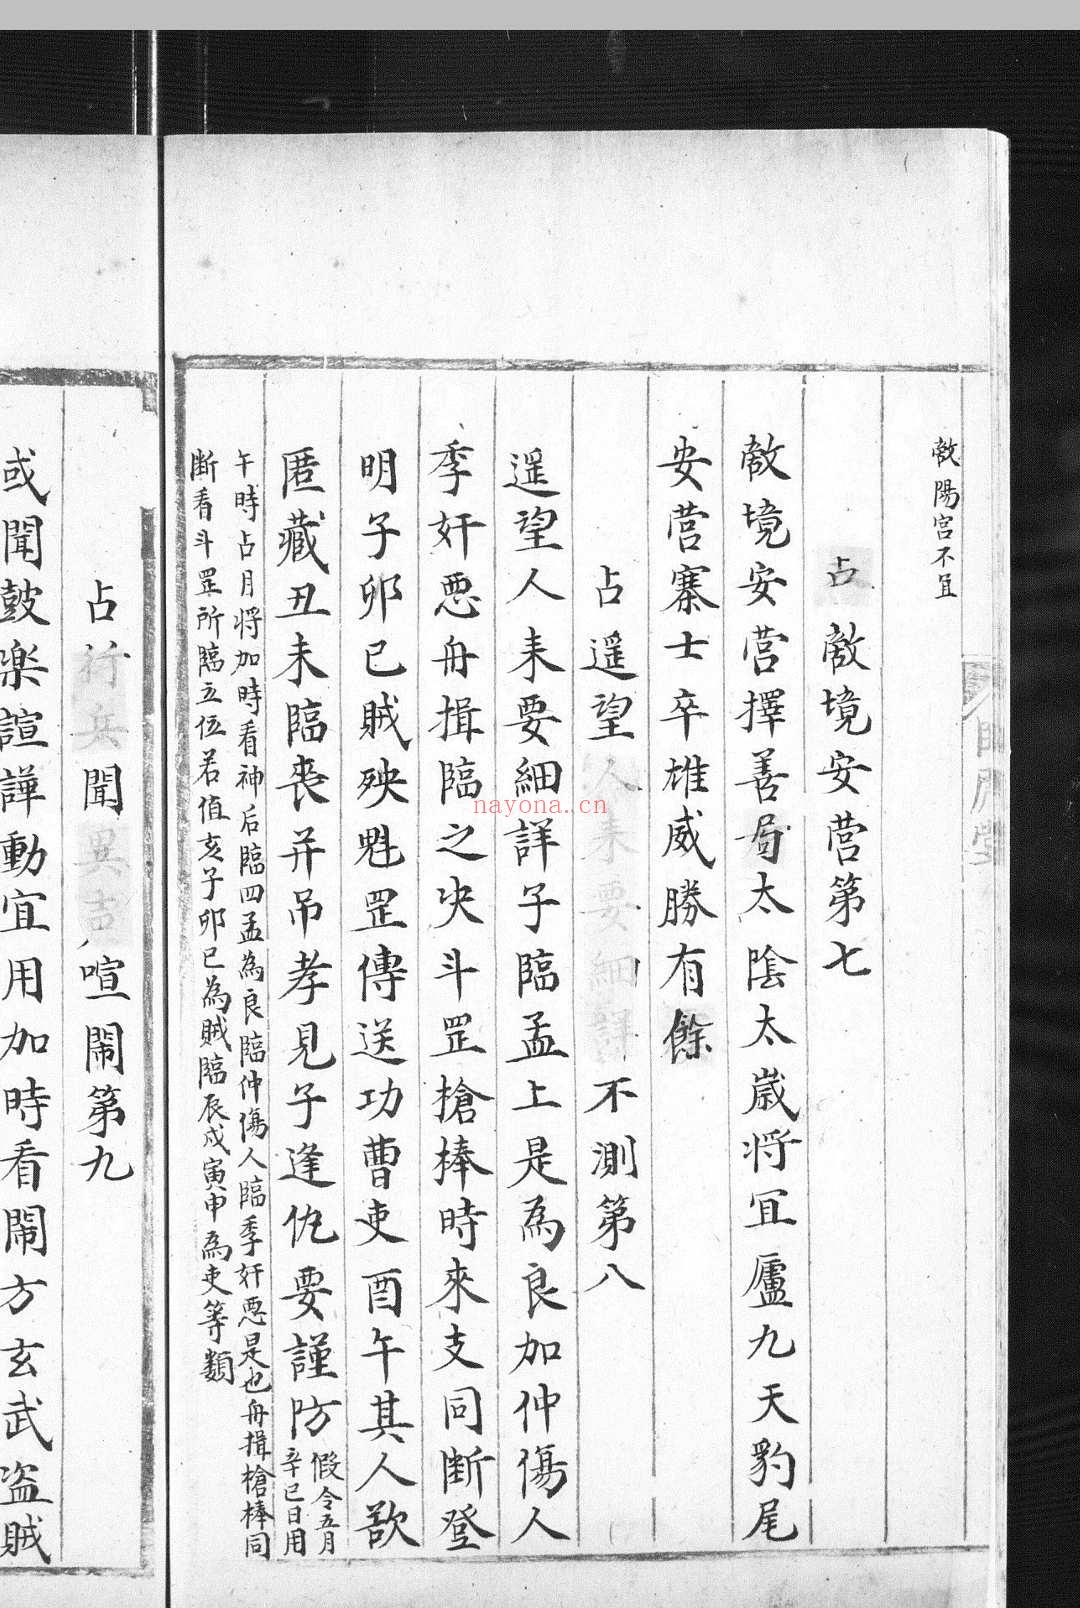 敵陽宮不宜
占敵境安营第七
敵境安营擇善局太陰太歲将冝廬九天豹尾
安营寨士卒雄威勝有餘
占遥望人来要細詳不測第八
遥望人来要細詳子臨孟上是為良加仲傷人
季奸悪舟揖臨之决斗罡槍棒時來支同断登
明子卯巳賊殃魁罡傳送功曹吏酉午其人欲
匿藏丑未臨丧并吊孝見子逢仇要謹防假令五月
辛巳日用
午時占月将加時看神后臨四孟為良臨仲傷人臨季奸悪是也舟揖槍棒同
断看斗罡所臨立伍若值亥子卯巳為賊臨辰戍寅申為吏等類
占行兵聞異吉喧鬧第九
或聞鼓楽諠譁動宜用加時看鬧方玄武盗賊
nayona.cn